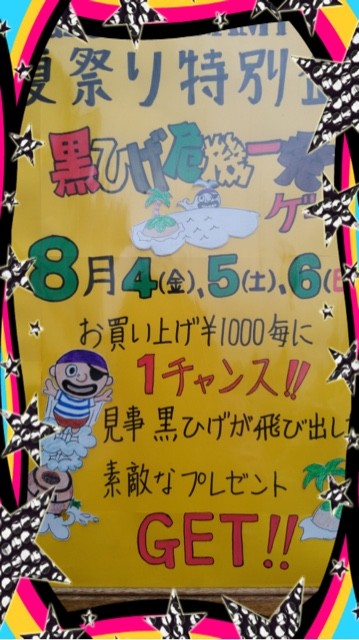 夏祭り特別企
黒ひげ危機一発
ゲー
8月4(金)、5(土)、6(日
お買い上げ¥1000毎に
1チャンス!!
見事黒ひげが飛び出し
素敵なプレゼント
GET!!